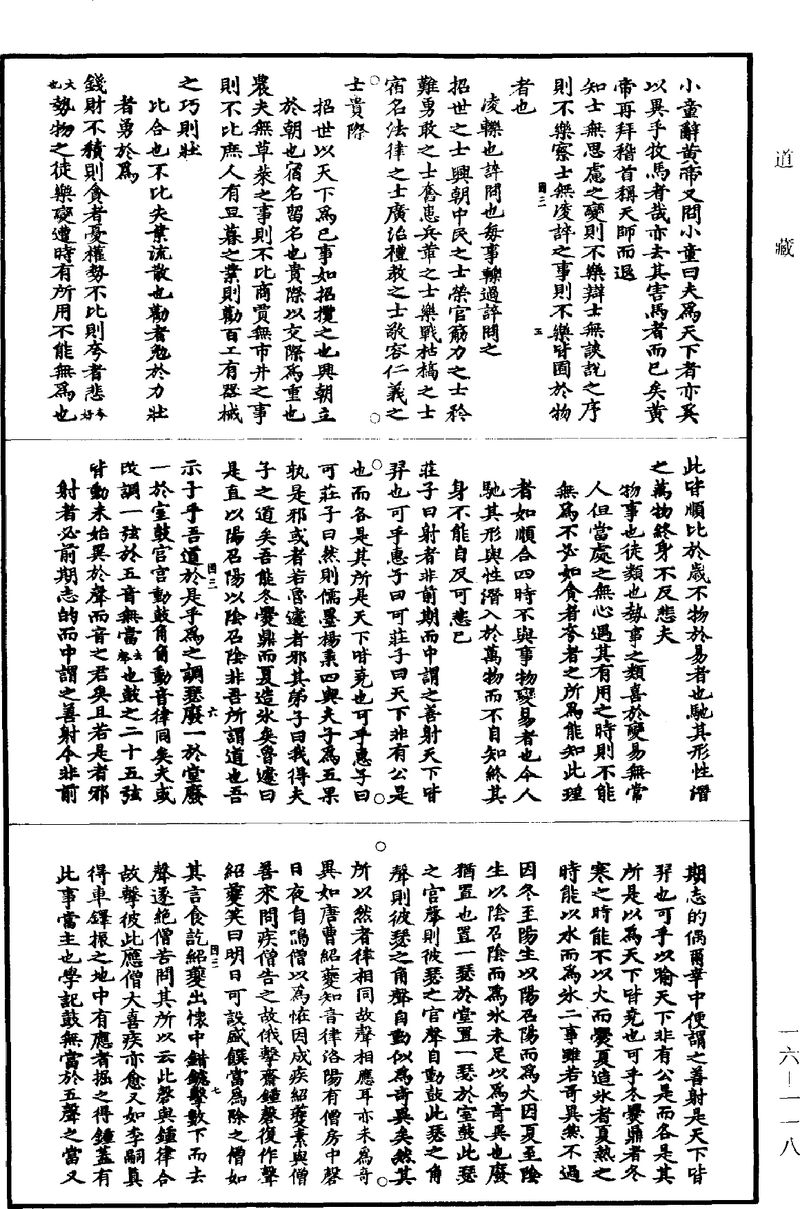 道藏
小童辭黃帝又問小童曰夫為天下者亦奚
以異乎牧馬者哉亦去其害馬者而已矣黃
帝再拜稽首稱天師而退
知士無思慮之變則不樂辯士無談說之序
則不樂察士無凌誶之事則不樂皆囿於物
者也
凌轢也誶問也每事轢過誶問之
招世之士興朝中民之士榮官筋力之士矜
難勇敢之士奮患兵革之士樂戰枯槁之士
宿名法律之士廣治禮教之士敬容仁義之
士貴際
招世以天下為己事如招攬之也興朝立
於朝也宿名留名也貴際以交際為重也
農夫無草萊之事則不比商賈無市井之事
則不比庶人有旦暮之業則勸百工有器械
之巧則壯
比合也不比失業流散也勸者勉於力壯
者勇於為
錢財不積則貪者憂權勢不比則夸者悲夸好
大也勢物之徒樂變遭時有所用不能無為也
此皆順比於歲不物於易者也馳其形性潛
之萬物終身不反悲夫
物事也徒類也勢事之類喜於變易無常
人但當處之無心遇其有用之時則不能
無為不必如貪者夸者之所為能知此理
者如順合四時不與事物變易者也今人
馳其形與性潛入於萬物而不自知終其
身不能自反可悲已
莊子曰射者非前期而中謂之善射天下皆
羿也可乎惠子曰可莊子曰天下非有公是
也而各是其所是天下皆堯也可乎惠子曰
可莊子曰然則儒墨楊秉四與夫子為五果
孰是邪或者若魯遽者邪其弟子曰我得夫
子之道矣吾能冬爨鼎而夏造氷矣魯遽曰
是直以陽召陽以陰召陰非吾所謂道也吾
示子乎吾道於是乎為之調瑟廢一於堂廢
一於室鼓宮宮動鼓角角動音律同矣夫或
改調一弦於五音無當去聲也鼓之二十五弦
皆動未始異於聲而音之君矣且若是者邪
射者必前期志的而中謂之善射今非前
期志的偶爾幸中便謂之善射是天下皆
羿也可乎以喻天下非有公是而各是其
所是以為天下皆堯也可乎冬爨鼎者冬
寒之時能不以火而爨夏造氷者夏熱之
時能以水而為氷二事雖若奇異然不過
因冬至陽生以陽召陽而為火因夏至陰
生以陰召陰而為氷未足以為奇異也廢
猶置也置一瑟於堂置一瑟於室鼓此瑟
之宮聲則彼瑟之宮聲自動鼓此瑟之角
聲則彼瑟之角聲自動似為奇異矣然其
所以然者律相同故聲相應耳亦未為奇
異如唐曹紹夔知音律洛陽有僧房中磬
日夜自鳴僧以為怪因成疾紹夔素與僧
善來問疾僧告之故俄擊齋鐘磬復作聲
紹夔笑曰明日可設盛饌當為除之僧如
其言食訖紹夔出懷中錯鑢擊數下而去
聲遂絕僧苦問其所以云此磬與鐘律合
故擊彼此應僧大喜疾亦愈又如李嗣真
得車鐸振之地中有應者掘之得鐘蓋有
此事當主也學記鼓無當於五聲之當又
囗三 五
囗三 六
囗三 七
一六—一一八